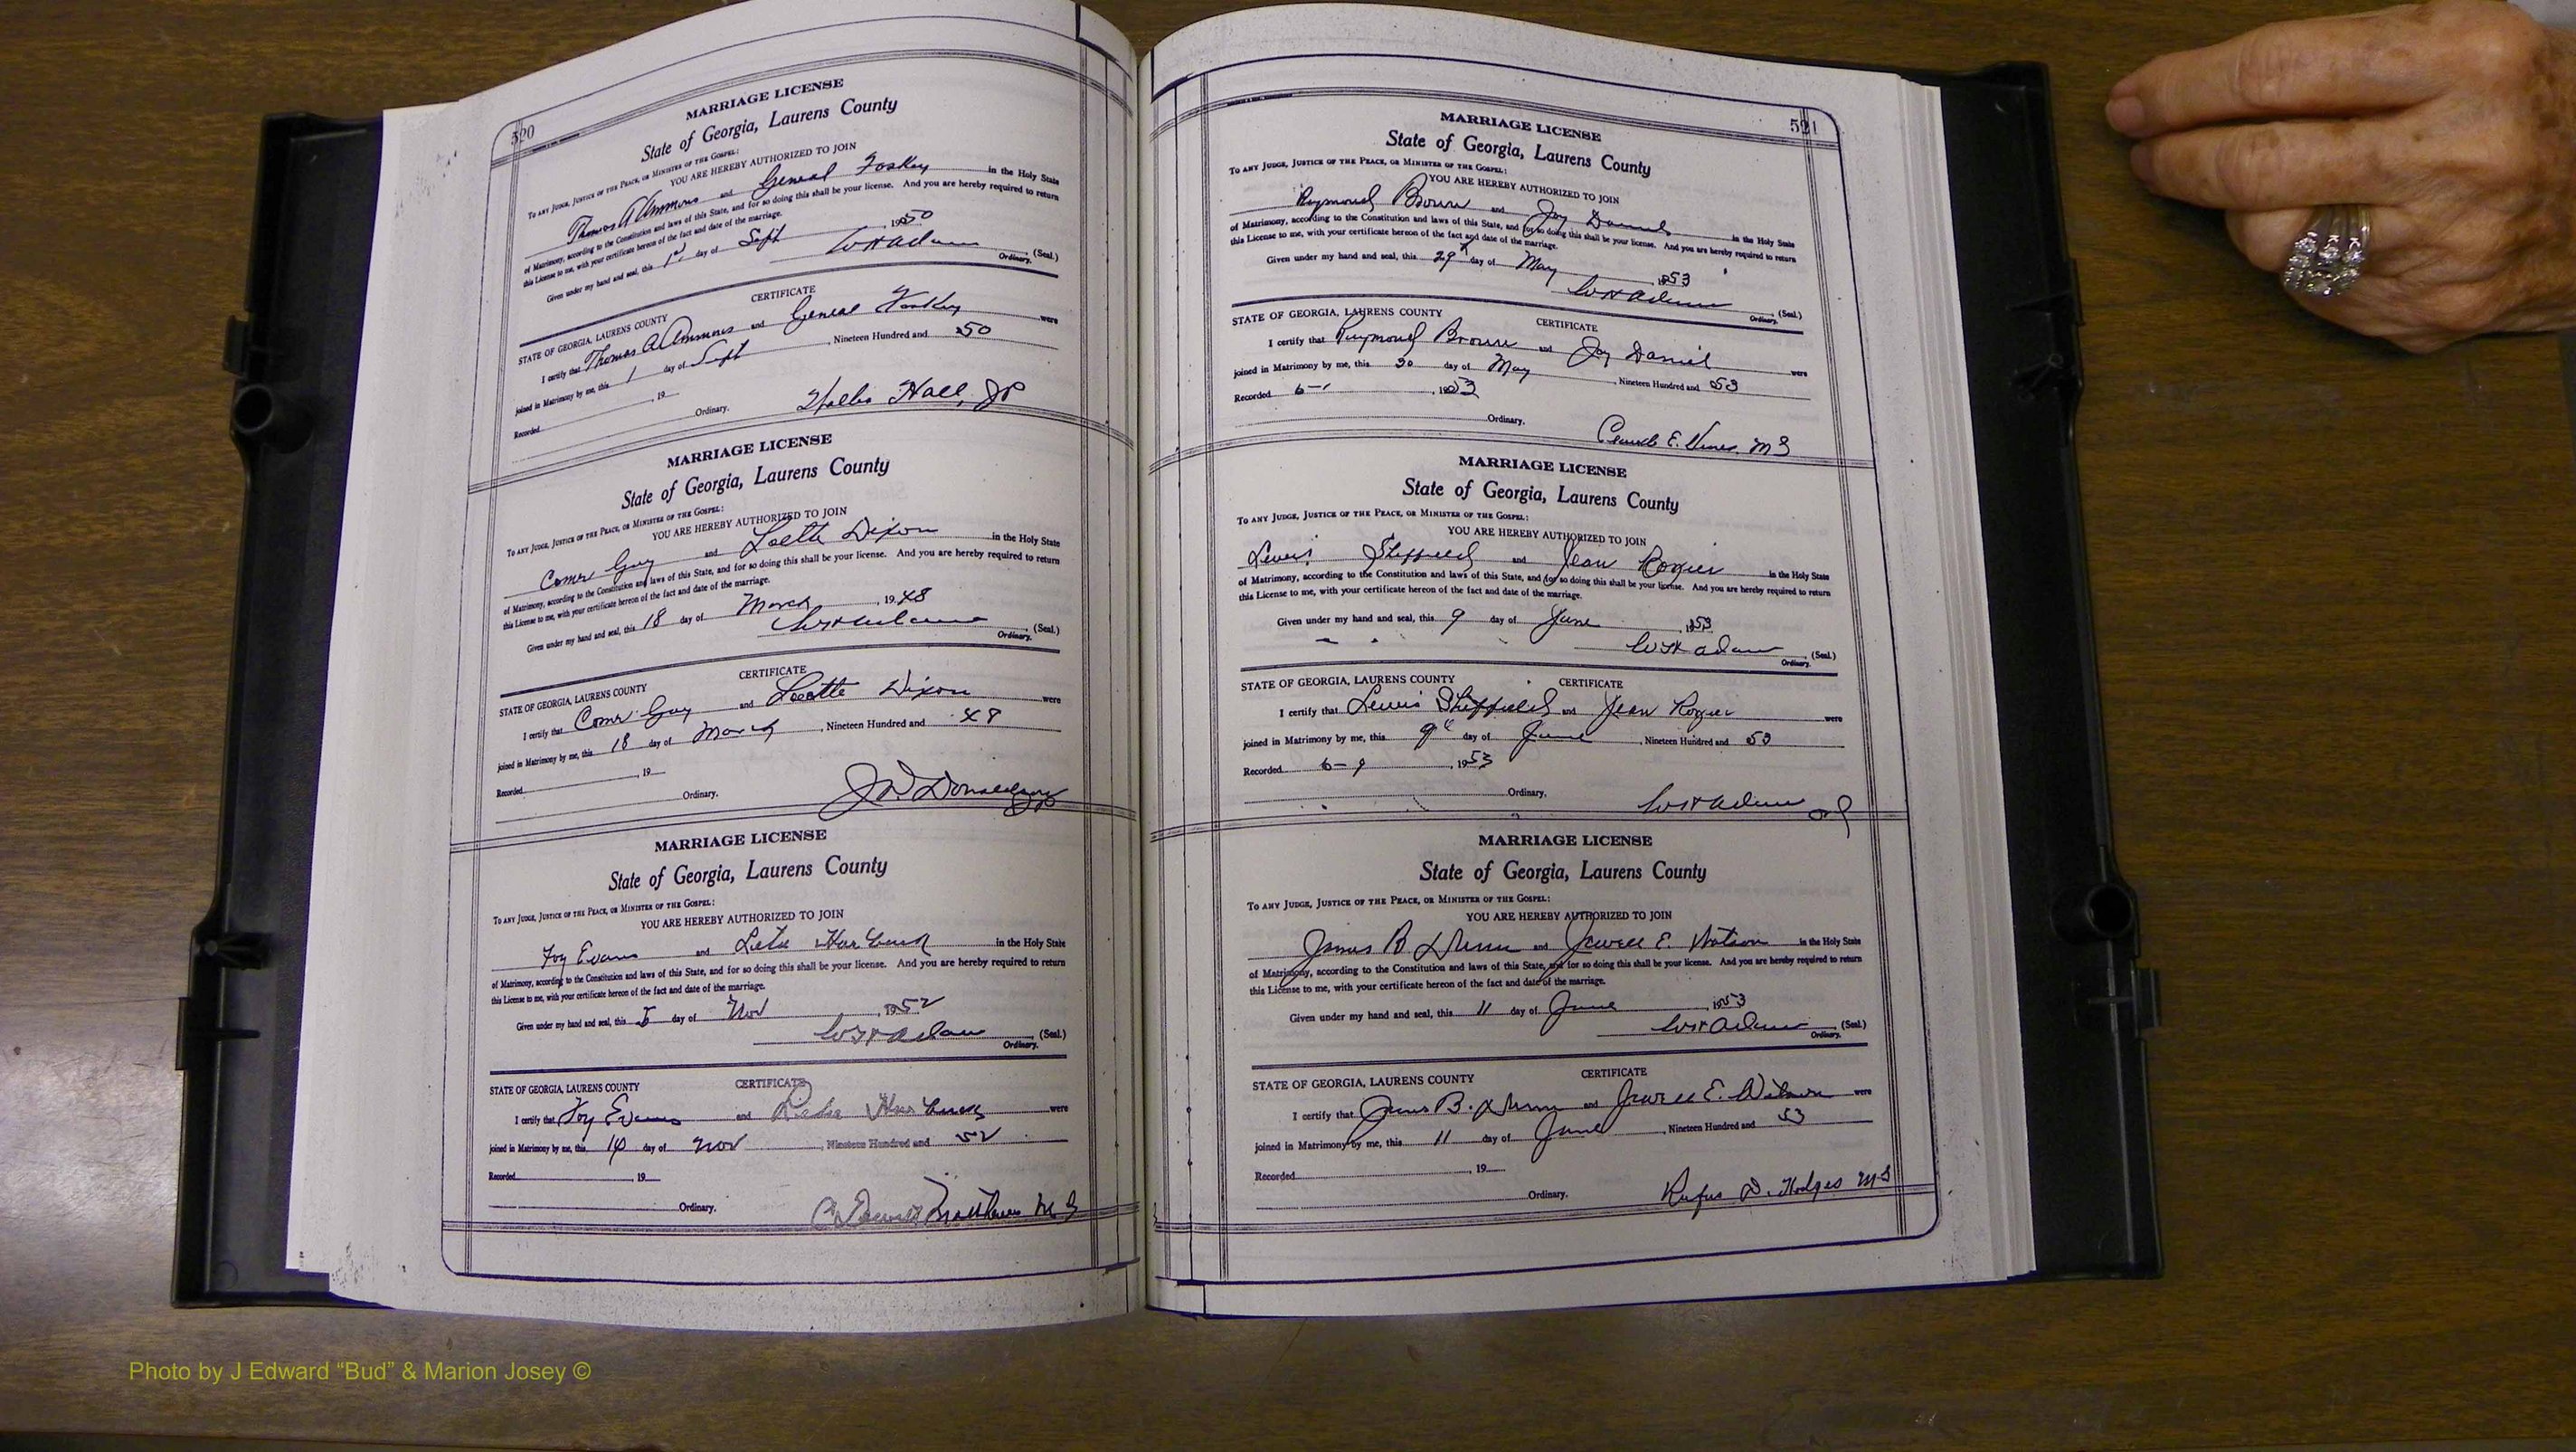 520
MARRIAGE LICENSE
State of Georgia, Laurens County
TO ANY JUDGE, JUSTICE OF THE PEACE, OR MINISTER OF THE GOSPEL:
YOU ARE HEREBY AUTHORIZED TO JOIN
Thomas A Ammons and Geneal Foskey in the Holy State
of Matrimony, according to the Constitution and laws of this State, and for so doing this shall be your license. And you are hereby required to return
this License to me, with your certificate hereon of the fact and date of the marriage.
Given under my hand and seal, this 1st day of Sept, 1950
W H Adams (Seal.)
Ordinary.
CERTIFICATE
STATE OF GEORGIA, LAURENS COUNTY
I certify that Thomas A. Ammons and Geneal Foskey were
joined in Matrimony by me, this 1 day of Sept, Nineteen Hundred and 50
Recorded , 19
Ordinary. Hall, JP
MARRIAGE LICENSE
State of Georgia, Laurens County
TO ANY JUDGE, JUSTICE OF THE PEACE, OR MINISTER OF THE GOSPEL:
YOU ARE HEREBY AUTHORIZED TO JOIN
Comer Guy and Dixon in the Holy State
of Matrimony, according to the Constitution and laws of this State, and for so doing this shall be your license. And you are hereby required to return
this License to me, with your certificate hereon of the fact and date of the marriage.
Given under my hand and seal, this 18 day of March, 1948
W H Adams (Seal.)
Ordinary.
CERTIFICATE
STATE OF GEORGIA, LAURENS COUNTY
I certify that Comer Guy and Dixon were
joined in Matrimony by me, this 18 day of March, Nineteen Hundred and 48
Recorded , 19
Ordinary.
MARRIAGE LICENSE
State of Georgia, Laurens County
TO ANY JUDGE, JUSTICE OF THE PEACE, OR MINISTER OF THE GOSPEL:
YOU ARE HEREBY AUTHORIZED TO JOIN
Foy Evans and in the Holy State
of Matrimony, according to the Constitution and laws of this State, and for so doing this shall be your license. And you are hereby required to return
this License to me, with your certificate hereon of the fact and date of the marriage.
Given under my hand and seal, this day of Nov, 1952
W H Adams (Seal.)
Ordinary.
CERTIFICATE
STATE OF GEORGIA, LAURENS COUNTY
I certify that Foy Evans and were
joined in Matrimony by me, this day of Nov, Nineteen Hundred and 52
Recorded , 19
Ordinary. M G
521
MARRIAGE LICENSE
State of Georgia, Laurens County
TO ANY JUDGE, JUSTICE OF THE PEACE, OR MINISTER OF THE GOSPEL:
YOU ARE HEREBY AUTHORIZED TO JOIN
Raymond Brown and Joy Daniel in the Holy State
of Matrimony, according to the Constitution and laws of this State, and for so doing this shall be your license. And you are hereby required to return
this License to me, with your certificate hereon of the fact and date of the marriage.
Given under my hand and seal, this 29 day of May, 1953
W H Adams (Seal.)
Ordinary.
STATE OF GEORGIA, LAURENS COUNTY CERTIFICATE
I certify that Raymond Brown and Joy Daniel were
joined in Matrimony by me, this 30 day of May, Nineteen Hundred and 53
Recorded 6-1, 1953
Ordinary.
E. Vines, M G
MARRIAGE LICENSE
State of Georgia, Laurens County
TO ANY JUDGE, JUSTICE OF THE PEACE, OR MINISTER OF THE GOSPEL:
YOU ARE HEREBY AUTHORIZED TO JOIN
Lewis Sheffield and Jean Rozier in the Holy State
of Matrimony, according to the Constitution and laws of this State, and for so doing this shall be your license. And you are hereby required to return
this License to me, with your certificate hereon of the fact and date of the marriage.
Given under my hand and seal, this 9 day of June, 1953
W H Adams (Seal.)
Ordinary.
STATE OF GEORGIA, LAURENS COUNTY CERTIFICATE
I certify that Lewis Sheffield and Jean Rozier were
joined in Matrimony by me, this 9 day of June, Nineteen Hundred and 53
Recorded 6-9, 1953
Ordinary. W H Adams
MARRIAGE LICENSE
State of Georgia, Laurens County
TO ANY JUDGE, JUSTICE OF THE PEACE, OR MINISTER OF THE GOSPEL:
YOU ARE HEREBY AUTHORIZED TO JOIN
James B and Jewell E. Watson in the Holy State
of Matrimony, according to the Constitution and laws of this State, and for so doing this shall be your license. And you are hereby required to return
this License to me, with your certificate hereon of the fact and date of the marriage.
Given under my hand and seal, this 11 day of June, 1953
W H Adams (Seal.)
Ordinary.
STATE OF GEORGIA, LAURENS COUNTY CERTIFICATE
I certify that James B. and Jewell E. were
joined in Matrimony by me, this 11 day of June, Nineteen Hundred and 53
Recorded , 19
Ordinary. Rufus D. Hodges M G
Photo by J Edward “Bud” & Marion Josey ©